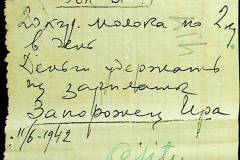 молока по 2 л
в день
Деньги удержать
из зарплаты
Запорожец Ира
11/6-1942